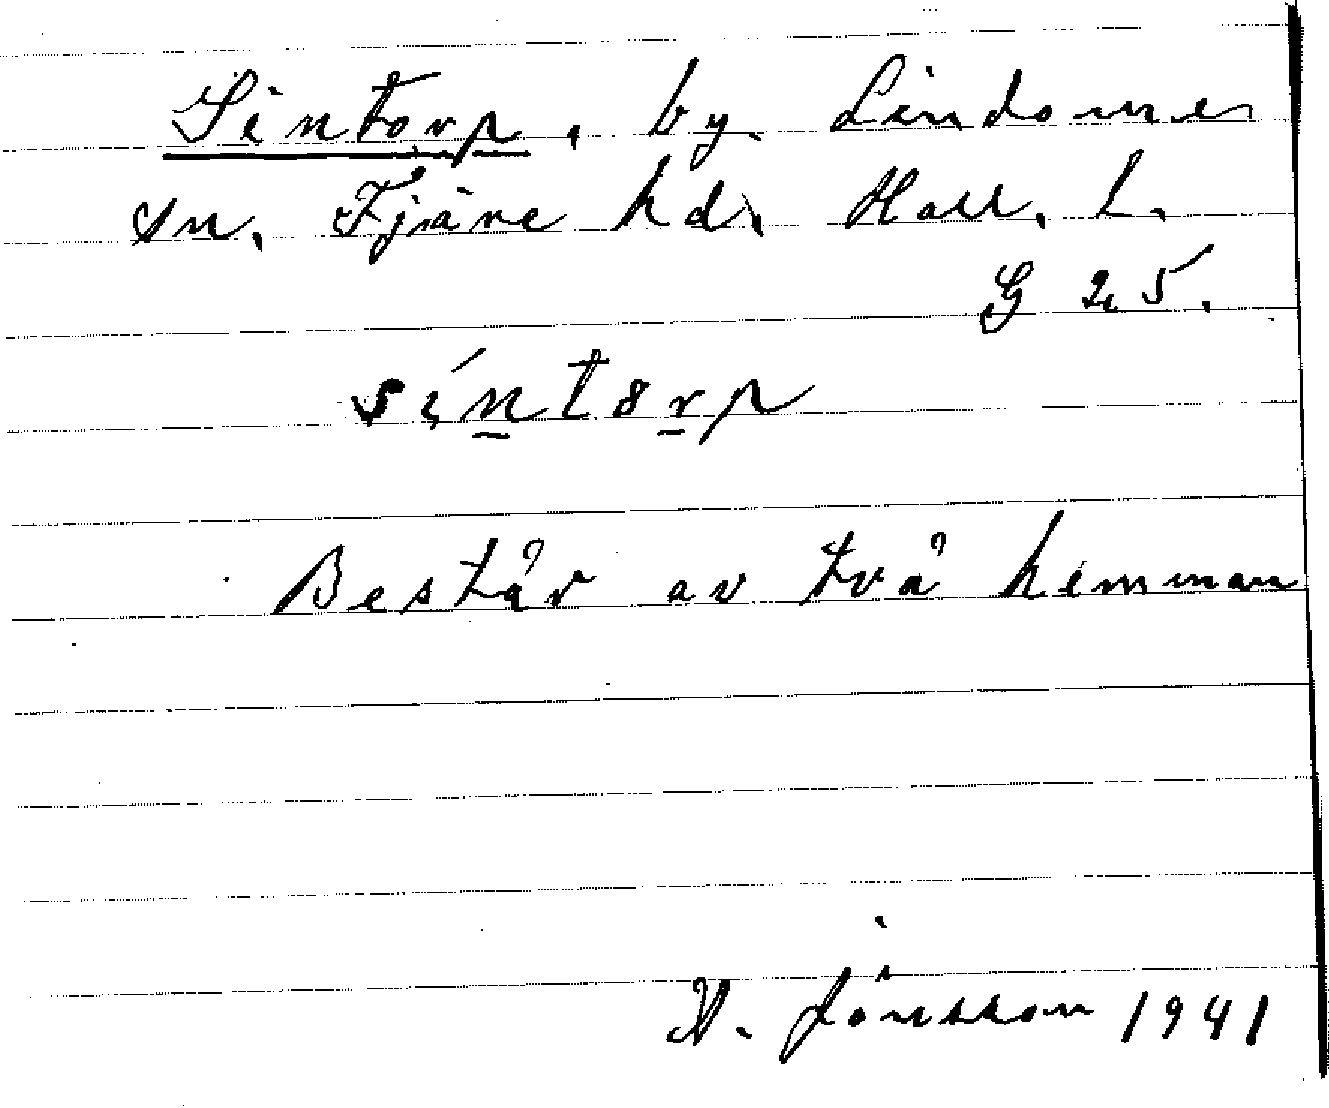 Sintorp, by. Lindome
sn. Fjäre hd. Hall. L.
G 25.
síntorp
Består av två hemman
Jönsson 1941